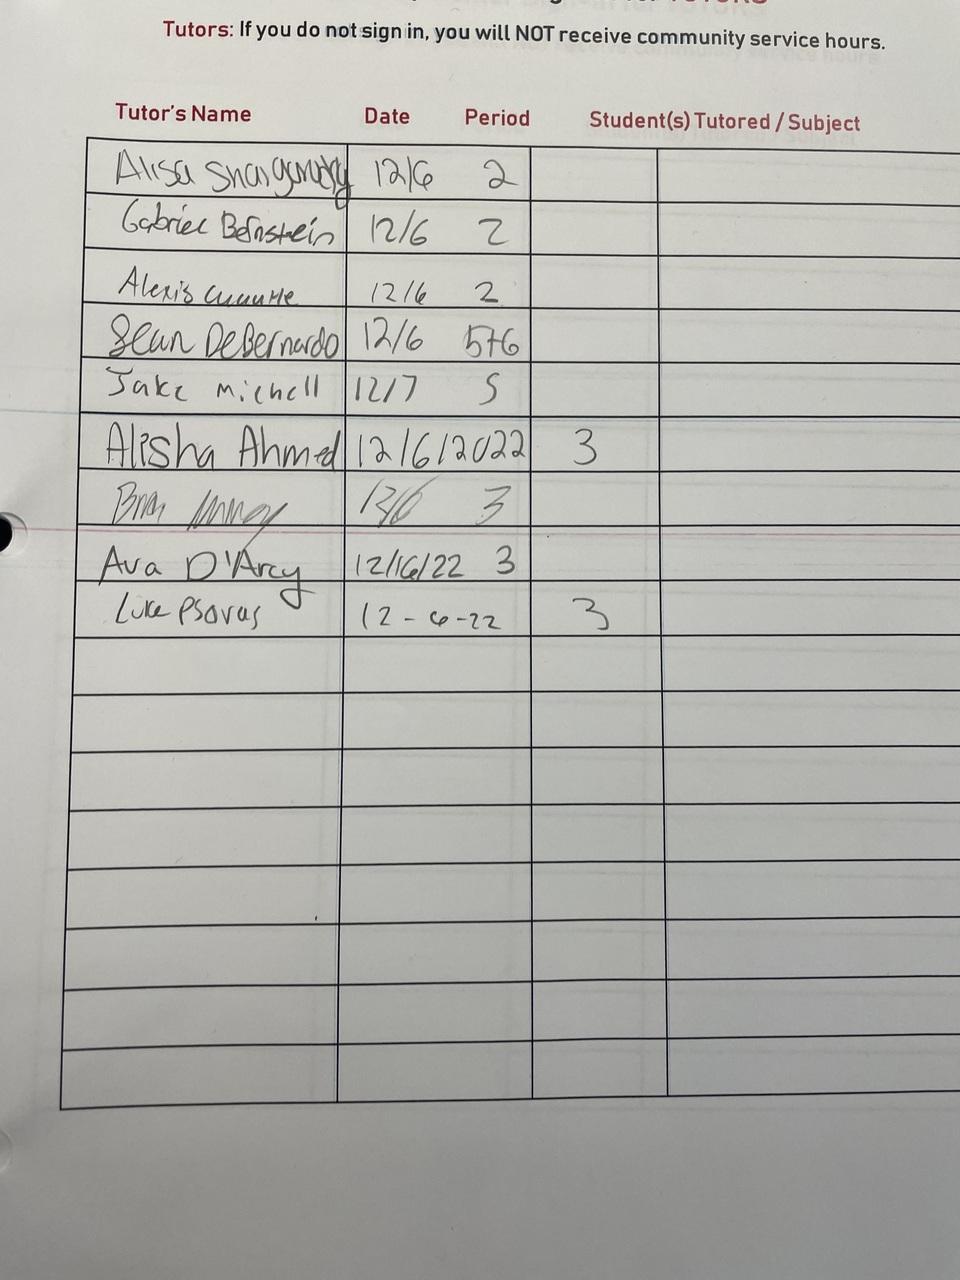 TUTORS
Tutors: If you do not sign in, you will NOT receive community service hours.
Tutor's Name Date Period Student(s) Tutored / Subject
Alisa 12/6 2
Gabriel Bernstein 12/6 2
Alexis 12/6 2
Sean DeBernardo 12/6 5+6
Jake Michell 12/7 5
Alisha Ahmed 12/6/2022 3
12/6 3
Ava D'Arcy 12/16/22 3
Luke Psoras 12-6-22 3